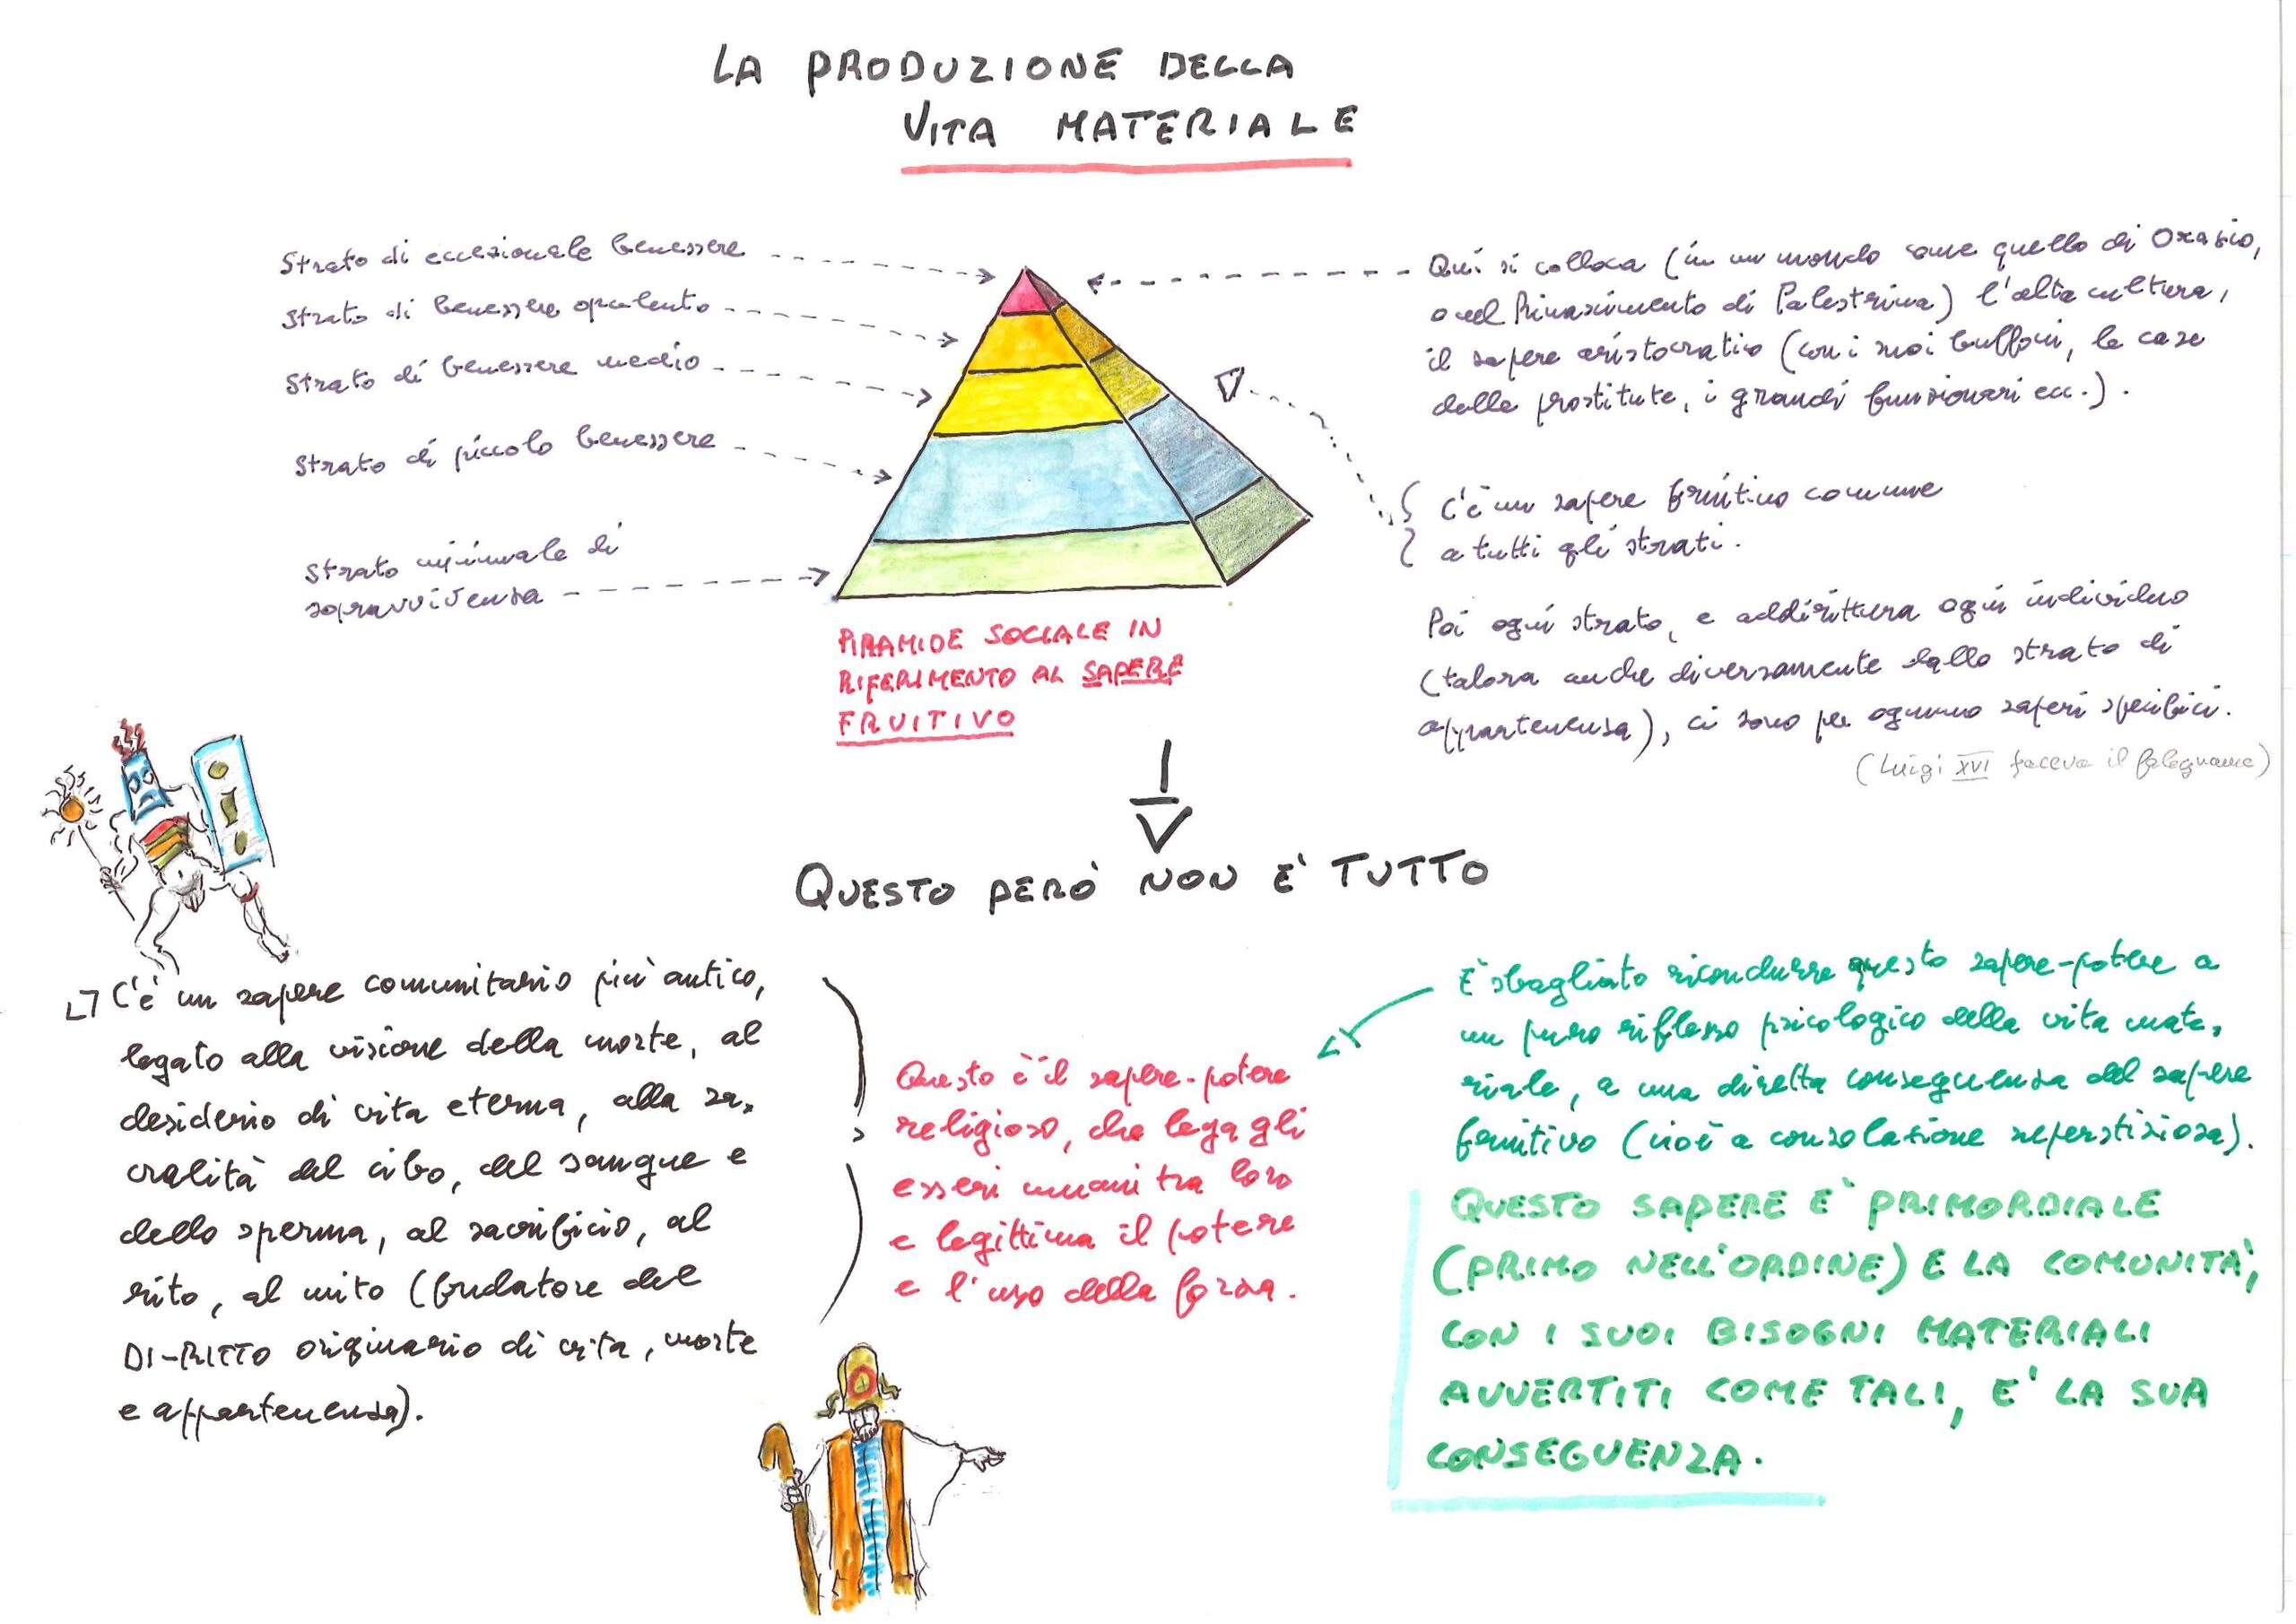 LA PRODUZIONE DELLA
VITA MATERIALE
Strato di eccezionale benessere
Strato di benessere opulento
Strato di benessere medio
Strato di piccolo benessere
Strato minimale di
sopravvivenza
Qui si colloca (in un mondo come quello di Orazio,
o nel Rinascimento di Palestrina) l'alta cultura,
il sapere aristocratico (con i suoi buffoni, le case
delle prostitute, i grandi funzionari ecc.).
C'è un sapere fruitivo comune
a tutti gli strati.
Poi ogni strato, e addirittura ogni individuo
(talora anche diversamente dallo strato di
appartenenza), ci sono per ognuno saperi specifici.
(Luigi XVI faceva il falegname)
PIRAMIDE SOCIALE IN
RIFERIMENTO AL SAPERE
FRUITIVO
QUESTO PERÒ NON E' TUTTO
C'è un sapere comunitario più antico,
legato alla visione della morte, al
desiderio di vita eterna, alla sa-
cralità del cibo, del sangue e
dello sperma, al sacrificio, al
rito, al mito (fondatore del
DI-RITTO originario di vita, morte
e appartenenza).
Questo è il sapere-potere
religioso, che lega gli
esseri umani tra loro
e legittima il potere
e l'uso della forza.
È sbagliato ricondurre questo sapere-potere a
un puro riflesso psicologico della vita mate-
riale, a una diretta conseguenza del sapere
fruitivo (cioè a consolazione superstiziosa).
QUESTO SAPERE E' PRIMORDIALE
(PRIMO NELL'ORDINE) E LA COMUNITA',
CON I SUOI BISOGNI MATERIALI
AVVERTITI COME TALI, E' LA SUA
CONSEGUENZA.